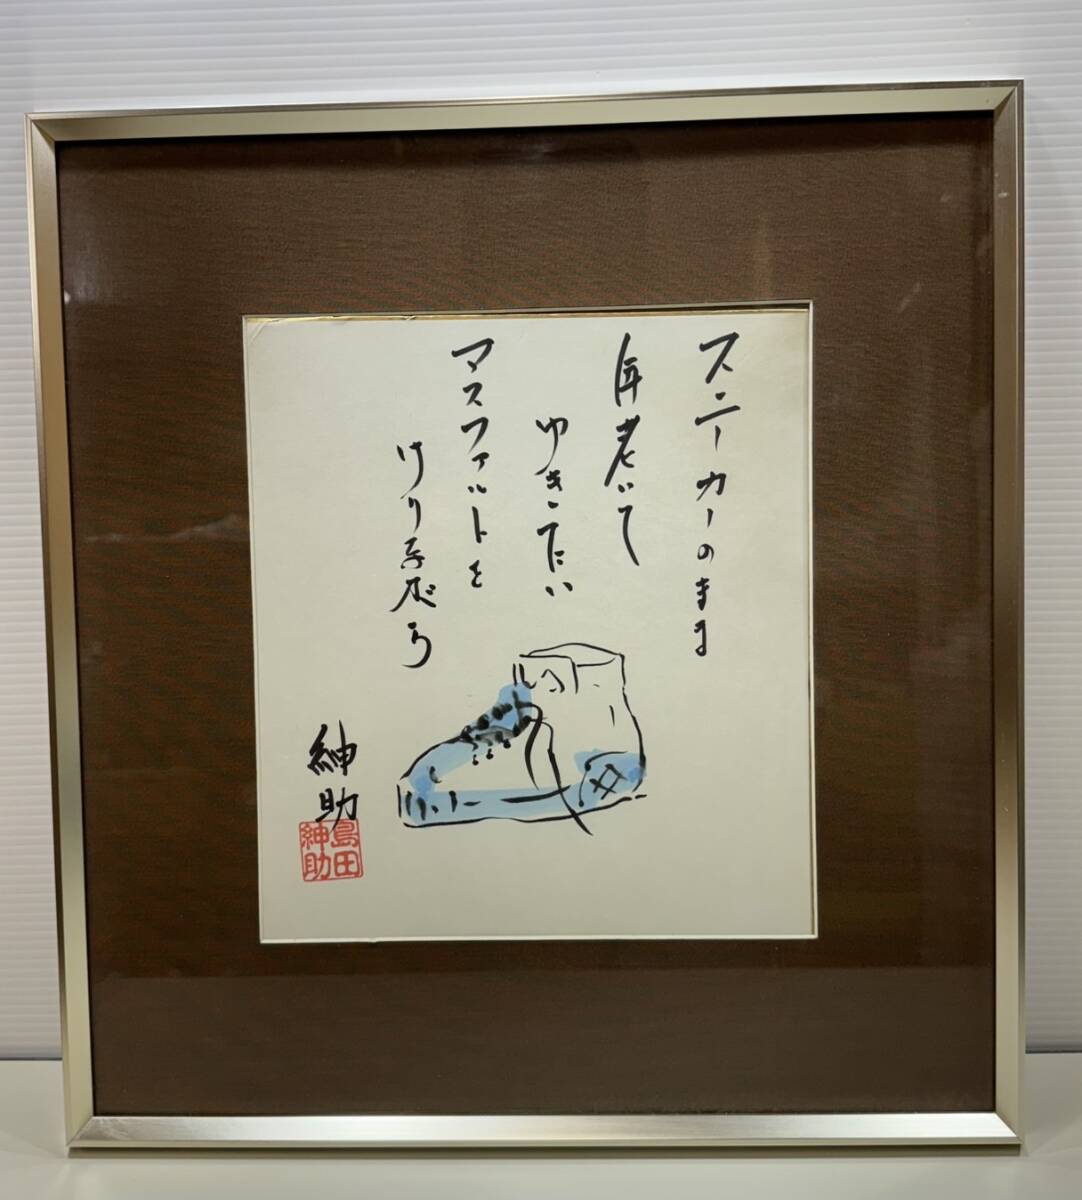 スニーカーのまま
年老いて
ゆきたい
アスファルトを
けり
紳助
島田
紳助